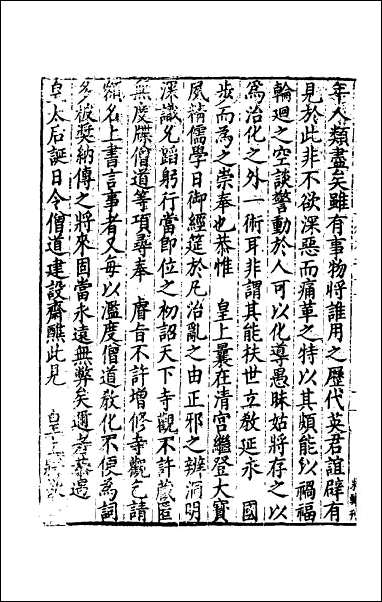 年人類盡矣雖有事物將誰用之歷代英君誼辟有
見於此非不欲深惡而痛革之特以其頗能以禍福
輪迴之空談警動於人可以化導愚昧姑將存之以
為治化之外一術耳非謂其能扶世立教延永　國
步而為之崇奉也恭惟　皇上曩在清宮繼登大寶
夙精儒學日御經筵於凡治亂之由正邪之辨洞明
深識允蹈躬行當即位之初詔天下寺觀不許藏匿
無度牒僧道等項尋奉　膚旨不許增修寺觀乞請
額名上書言事者又每以濫度僧道敎化不便為詞
多被奬納傳之將來固當永遠無弊矣邇者恭遇
皇太后誕日令僧道建設齋醮此見　皇上